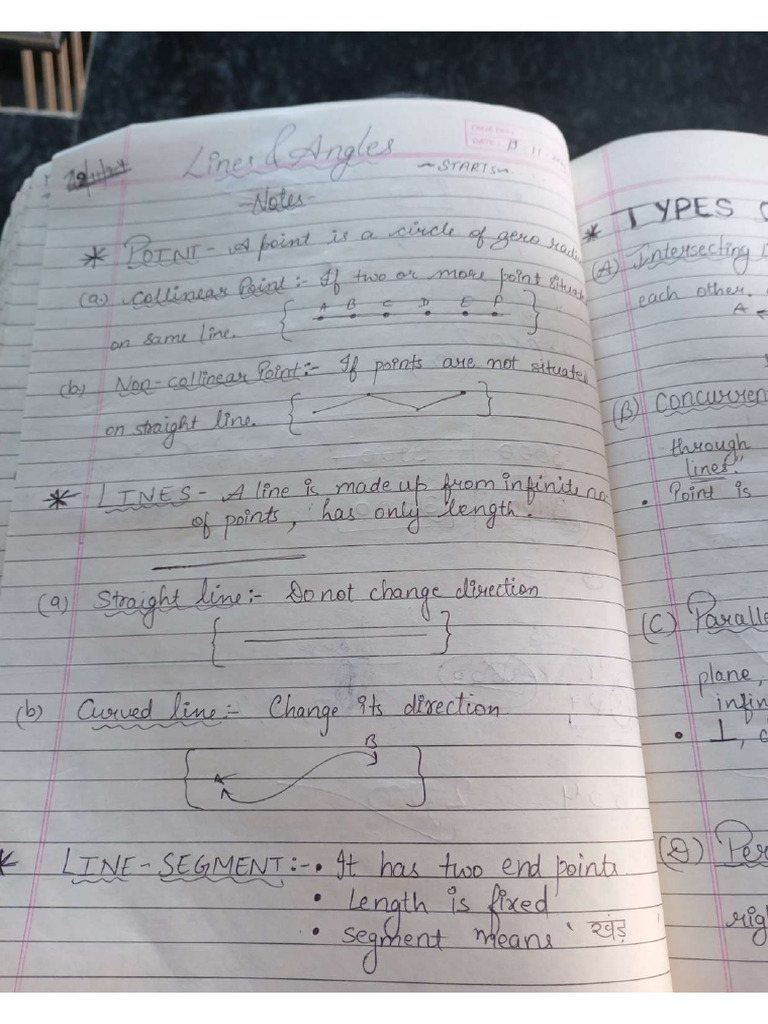 Lines & Angles
19 11
~STARTS~
-Notes-
* POINT - A point is a circle of zero radius
(a) Collinear Point :- If two or more point situate
on same line. { A B C D E F }
(b) Non-collinear Point :- If points are not situates
on straight line. { }
* LINES - A line is made up from infinite no
of points, has only length.
(a) Straight line :- Do not change direction
{ }
(b) Curved line :- Change its direction
{ A B }
* LINE-SEGMENT :- • It has two end points
• Length is fixed
• segment means ' खंड़ '
* TYPES
(A) Intersecting
each other.
A
(B) Concurren
through
lines."
• Point is
(C) Paralle
plane,
infin
• ⊥,
(D) Per
rig